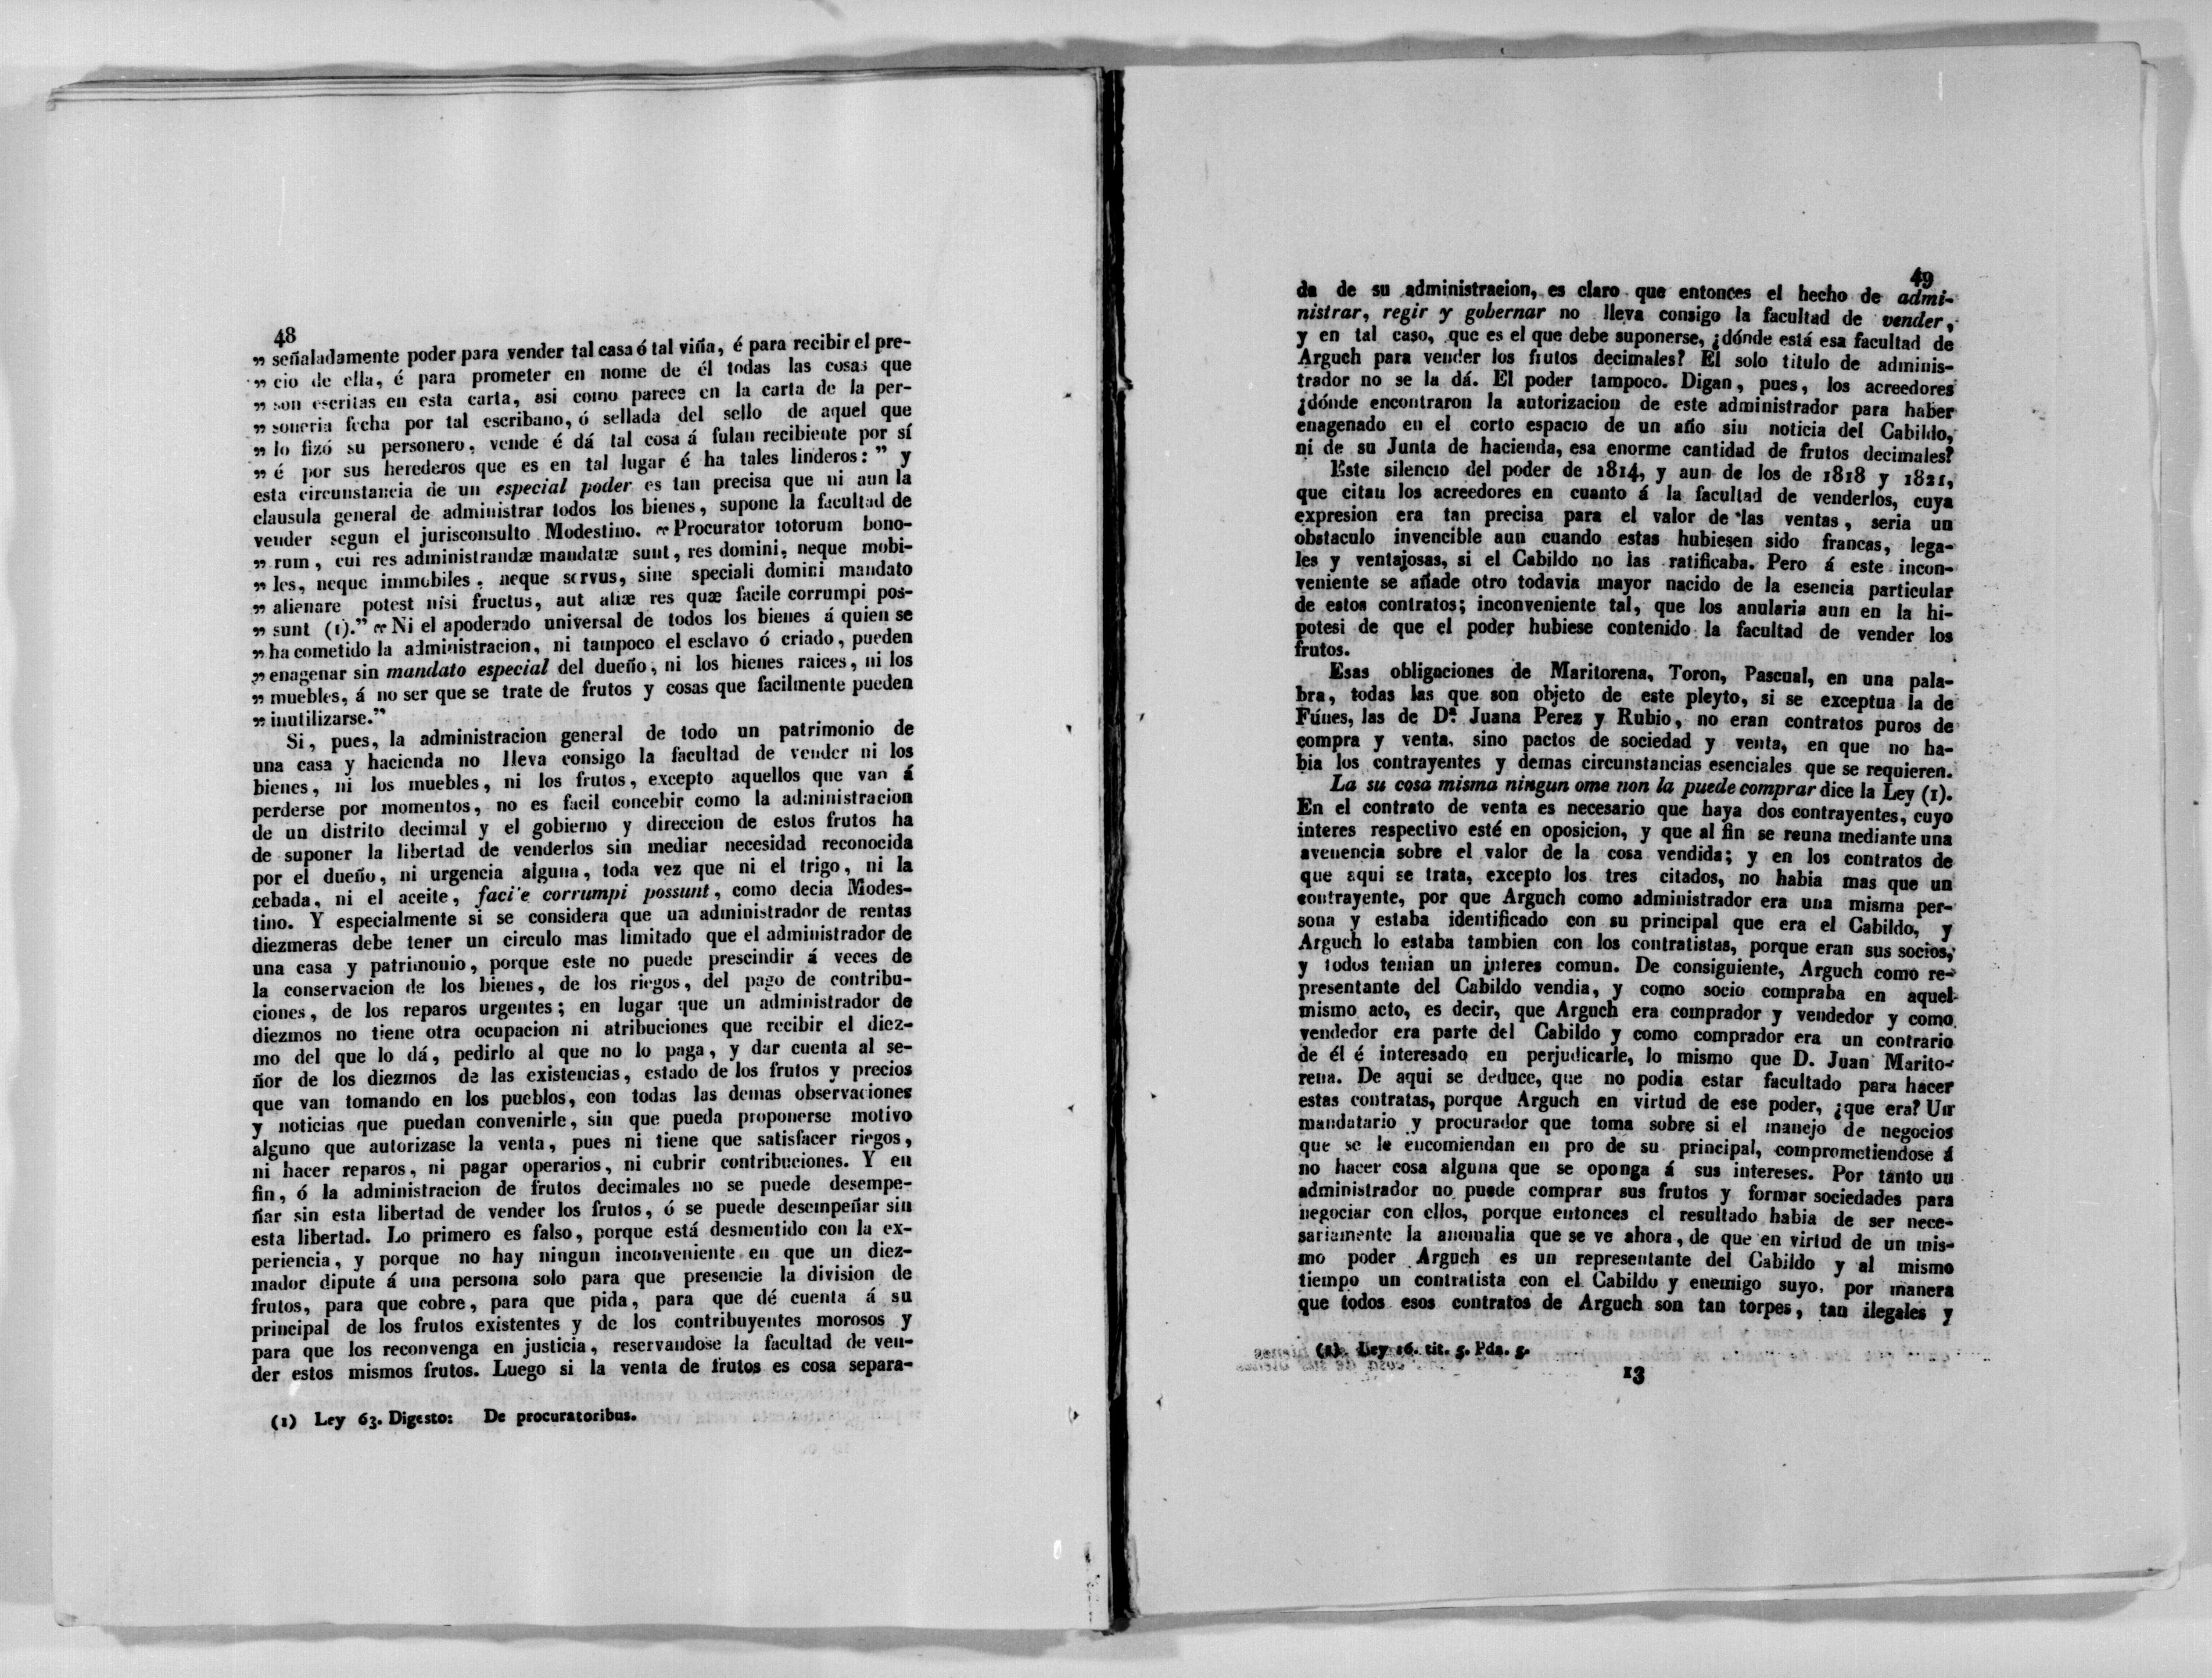 48
” señaladamente poder para vender tal casa ó tal viña, é para recibir el pre-
” cio de ella, é para prometer en nome de él todas las cosas que
” son escritas en esta carta, asi como parece en la carta de la per-
” soneria fecha por tal escribano, ó sellada del sello de aquel que
” lo fizó su personero, vende é dá tal cosa á fulan recibiente por sí
” é por sus herederos que es en tal lugar é ha tales linderos: ” y
esta circunstancia de un especial poder es tan precisa que ni aun la
clausula general de administrar todos los bienes, supone la facultad de
vender segun el jurisconsulto Modestino. “ Procurator totorum bono-
” rum, cui res administrandæ mandatæ sunt, res domini, neque mobi-
” les, neque immobiles, neque servus, sine speciali domini mandato
” alienare potest nisi fructus, aut aliæ res quæ facile corrumpi pos-
” sunt (1).” “ Ni el apoderado universal de todos los bienes á quien se
” ha cometido la administracion, ni tampoco el esclavo ó criado, pueden
” enagenar sin mandato especial del dueño, ni los bienes raices, ni los
” muebles, á no ser que se trate de frutos y cosas que facilmente pueden
” inutilizarse.”
Si, pues, la administracion general de todo un patrimonio de
una casa y hacienda no lleva consigo la facultad de vender ni los
bienes, ni los muebles, ni los frutos, excepto aquellos que van á
perderse por momentos, no es facil concebir como la administracion
de un distrito decimal y el gobierno y direccion de estos frutos ha
de suponer la libertad de venderlos sin mediar necesidad reconocida
por el dueño, ni urgencia alguna, toda vez que ni el trigo, ni la
cebada, ni el aceite, faci'e corrumpi possunt, como decia Modes-
tino. Y especialmente si se considera que un administrador de rentas
diezmeras debe tener un circulo mas limitado que el administrador de
una casa y patrimonio, porque este no puede prescindir á veces de
la conservacion de los bienes, de los riegos, del pago de contribu-
ciones, de los reparos urgentes; en lugar que un administrador de
diezmos no tiene otra ocupacion ni atribuciones que recibir el diez-
mo del que lo dá, pedirlo al que no lo paga, y dar cuenta al se-
ñor de los diezmos de las existencias, estado de los frutos y precios
que van tomando en los pueblos, con todas las demas observaciones
y noticias que puedan convenirle, sin que pueda proponerse motivo
alguno que autorizase la venta, pues ni tiene que satisfacer riegos,
ni hacer reparos, ni pagar operarios, ni cubrir contribuciones. Y en
fin, ó la administracion de frutos decimales no se puede desempe-
ñar sin esta libertad de vender los frutos, ó se puede desempeñar sin
esta libertad. Lo primero es falso, porque está desmentido con la ex-
periencia, y porque no hay ningun inconveniente en que un diez-
mador dipute á una persona solo para que presencie la division de
frutos, para que cobre, para que pida, para que dé cuenta á su
principal de los frutos existentes y de los contribuyentes morosos y
para que los reconvenga en justicia, reservandose la facultad de ven-
der estos mismos frutos. Luego si la venta de frutos es cosa separa-
(1) Ley 63. Digesto: De procuratoribus.
49
da de su administracion, es claro que entonces el hecho de admi-
nistrar, regir y gobernar no lleva consigo la facultad de vender,
y en tal caso, que es el que debe suponerse, ¿dónde está esa facultad de
Arguch para vender los frutos decimales? El solo titulo de adminis-
trador no se la dá. El poder tampoco. Digan, pues, los acreedores
¿dónde encontraron la autorizacion de este administrador para haber
enagenado en el corto espacio de un año sin noticia del Cabildo,
ni de su Junta de hacienda, esa enorme cantidad de frutos decimales?
Este silencio del poder de 1814, y aun de los de 1818 y 1821,
que citan los acreedores en cuanto á la facultad de venderlos, cuya
expresion era tan precisa para el valor de las ventas, seria un
obstaculo invencible aun cuando estas hubiesen sido francas, lega-
les y ventajosas, si el Cabildo no las ratificaba. Pero á este incon-
veniente se añade otro todavia mayor nacido de la esencia particular
de estos contratos; inconveniente tal, que los anularia aun en la hi-
potesi de que el poder hubiese contenido la facultad de vender los
frutos.
Esas obligaciones de Maritorena, Toron, Pascual, en una pala-
bra, todas las que son objeto de este pleyto, si se exceptua la de
Fúnes, las de Dª. Juana Perez y Rubio, no eran contratos puros de
compra y venta, sino pactos de sociedad y venta, en que no ha-
bia los contrayentes y demas circunstancias esenciales que se requieren.
La su cosa misma ningun ome non la puede comprar dice la Ley (1).
En el contrato de venta es necesario que haya dos contrayentes, cuyo
interes respectivo esté en oposicion, y que al fin se reuna mediante una
avenencia sobre el valor de la cosa vendida; y en los contratos de
que aqui se trata, excepto los tres citados, no habia mas que un
contrayente, por que Arguch como administrador era una misma per-
sona y estaba identificado con su principal que era el Cabildo, y
Arguch lo estaba tambien con los contratistas, porque eran sus socios,
y todos tenian un interes comun. De consiguiente, Arguch como re-
presentante del Cabildo vendia, y como socio compraba en aquel
mismo acto, es decir, que Arguch era comprador y vendedor y como
vendedor era parte del Cabildo y como comprador era un contrario
de él é interesado en perjudicarle, lo mismo que D. Juan Marito-
rena. De aqui se deduce, que no podia estar facultado para hacer
estas contratas, porque Arguch en virtud de ese poder, ¿que era? Un
mandatario y procurador que toma sobre si el manejo de negocios
que se le encomiendan en pro de su principal, comprometiendose á
no hacer cosa alguna que se oponga á sus intereses. Por tanto un
administrador no puede comprar sus frutos y formar sociedades para
negociar con ellos, porque entonces el resultado habia de ser nece-
sariamente la anomalia que se ve ahora, de que en virtud de un mis-
mo poder Arguch es un representante del Cabildo y al mismo
tiempo un contratista con el Cabildo y enemigo suyo, por manera
que todos esos contratos de Arguch son tan torpes, tan ilegales y
(1) Ley 16. tit. 5. Pda. 5.
13